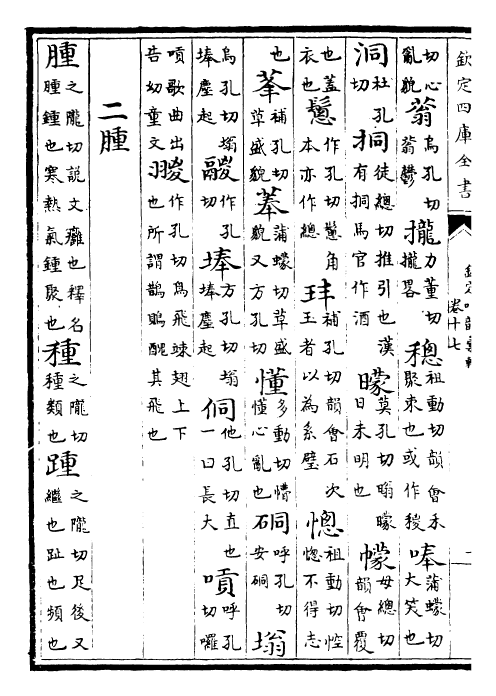 欽定四庫全書
欽定叶韻彙輯 卷十七
二
切心亂貌 蓊 烏孔切蓊鬱 攏 力董切攏畧 祖動切韻會禾聚束也或作稯 唪 蒲蠓切大笑也
洞 杜孔切 挏 徒總切推引也漢有挏馬官作酒 曚 莫孔切晦曚日未明也 幪 母總切韻會覆
也蓋衣也 作孔切角本亦作總 玤 補孔切韻會石次玉者以為系璧 愡 祖動切倥愡不得志
也 菶 補孔切草盛貌 菶 蒲蠓切草盛貌又方孔切 懂 多動切懵懂心亂也 硐 呼孔切石安硐 塕
烏孔切塕埲塵起 鬷 作孔切 埲 方孔切塕埲塵起 侗 他孔切直也一曰長大 嗊 呼孔切囉
嗊歌曲出告幼童文 翪 作孔切鳥飛竦翅上下也所謂鵲鵙醜其飛也
二腫
腫 之隴切說文癰也釋名腫鍾也寒熱氣鍾聚也 種 之隴切種類也 踵 之隴切足後又繼也趾也頻也